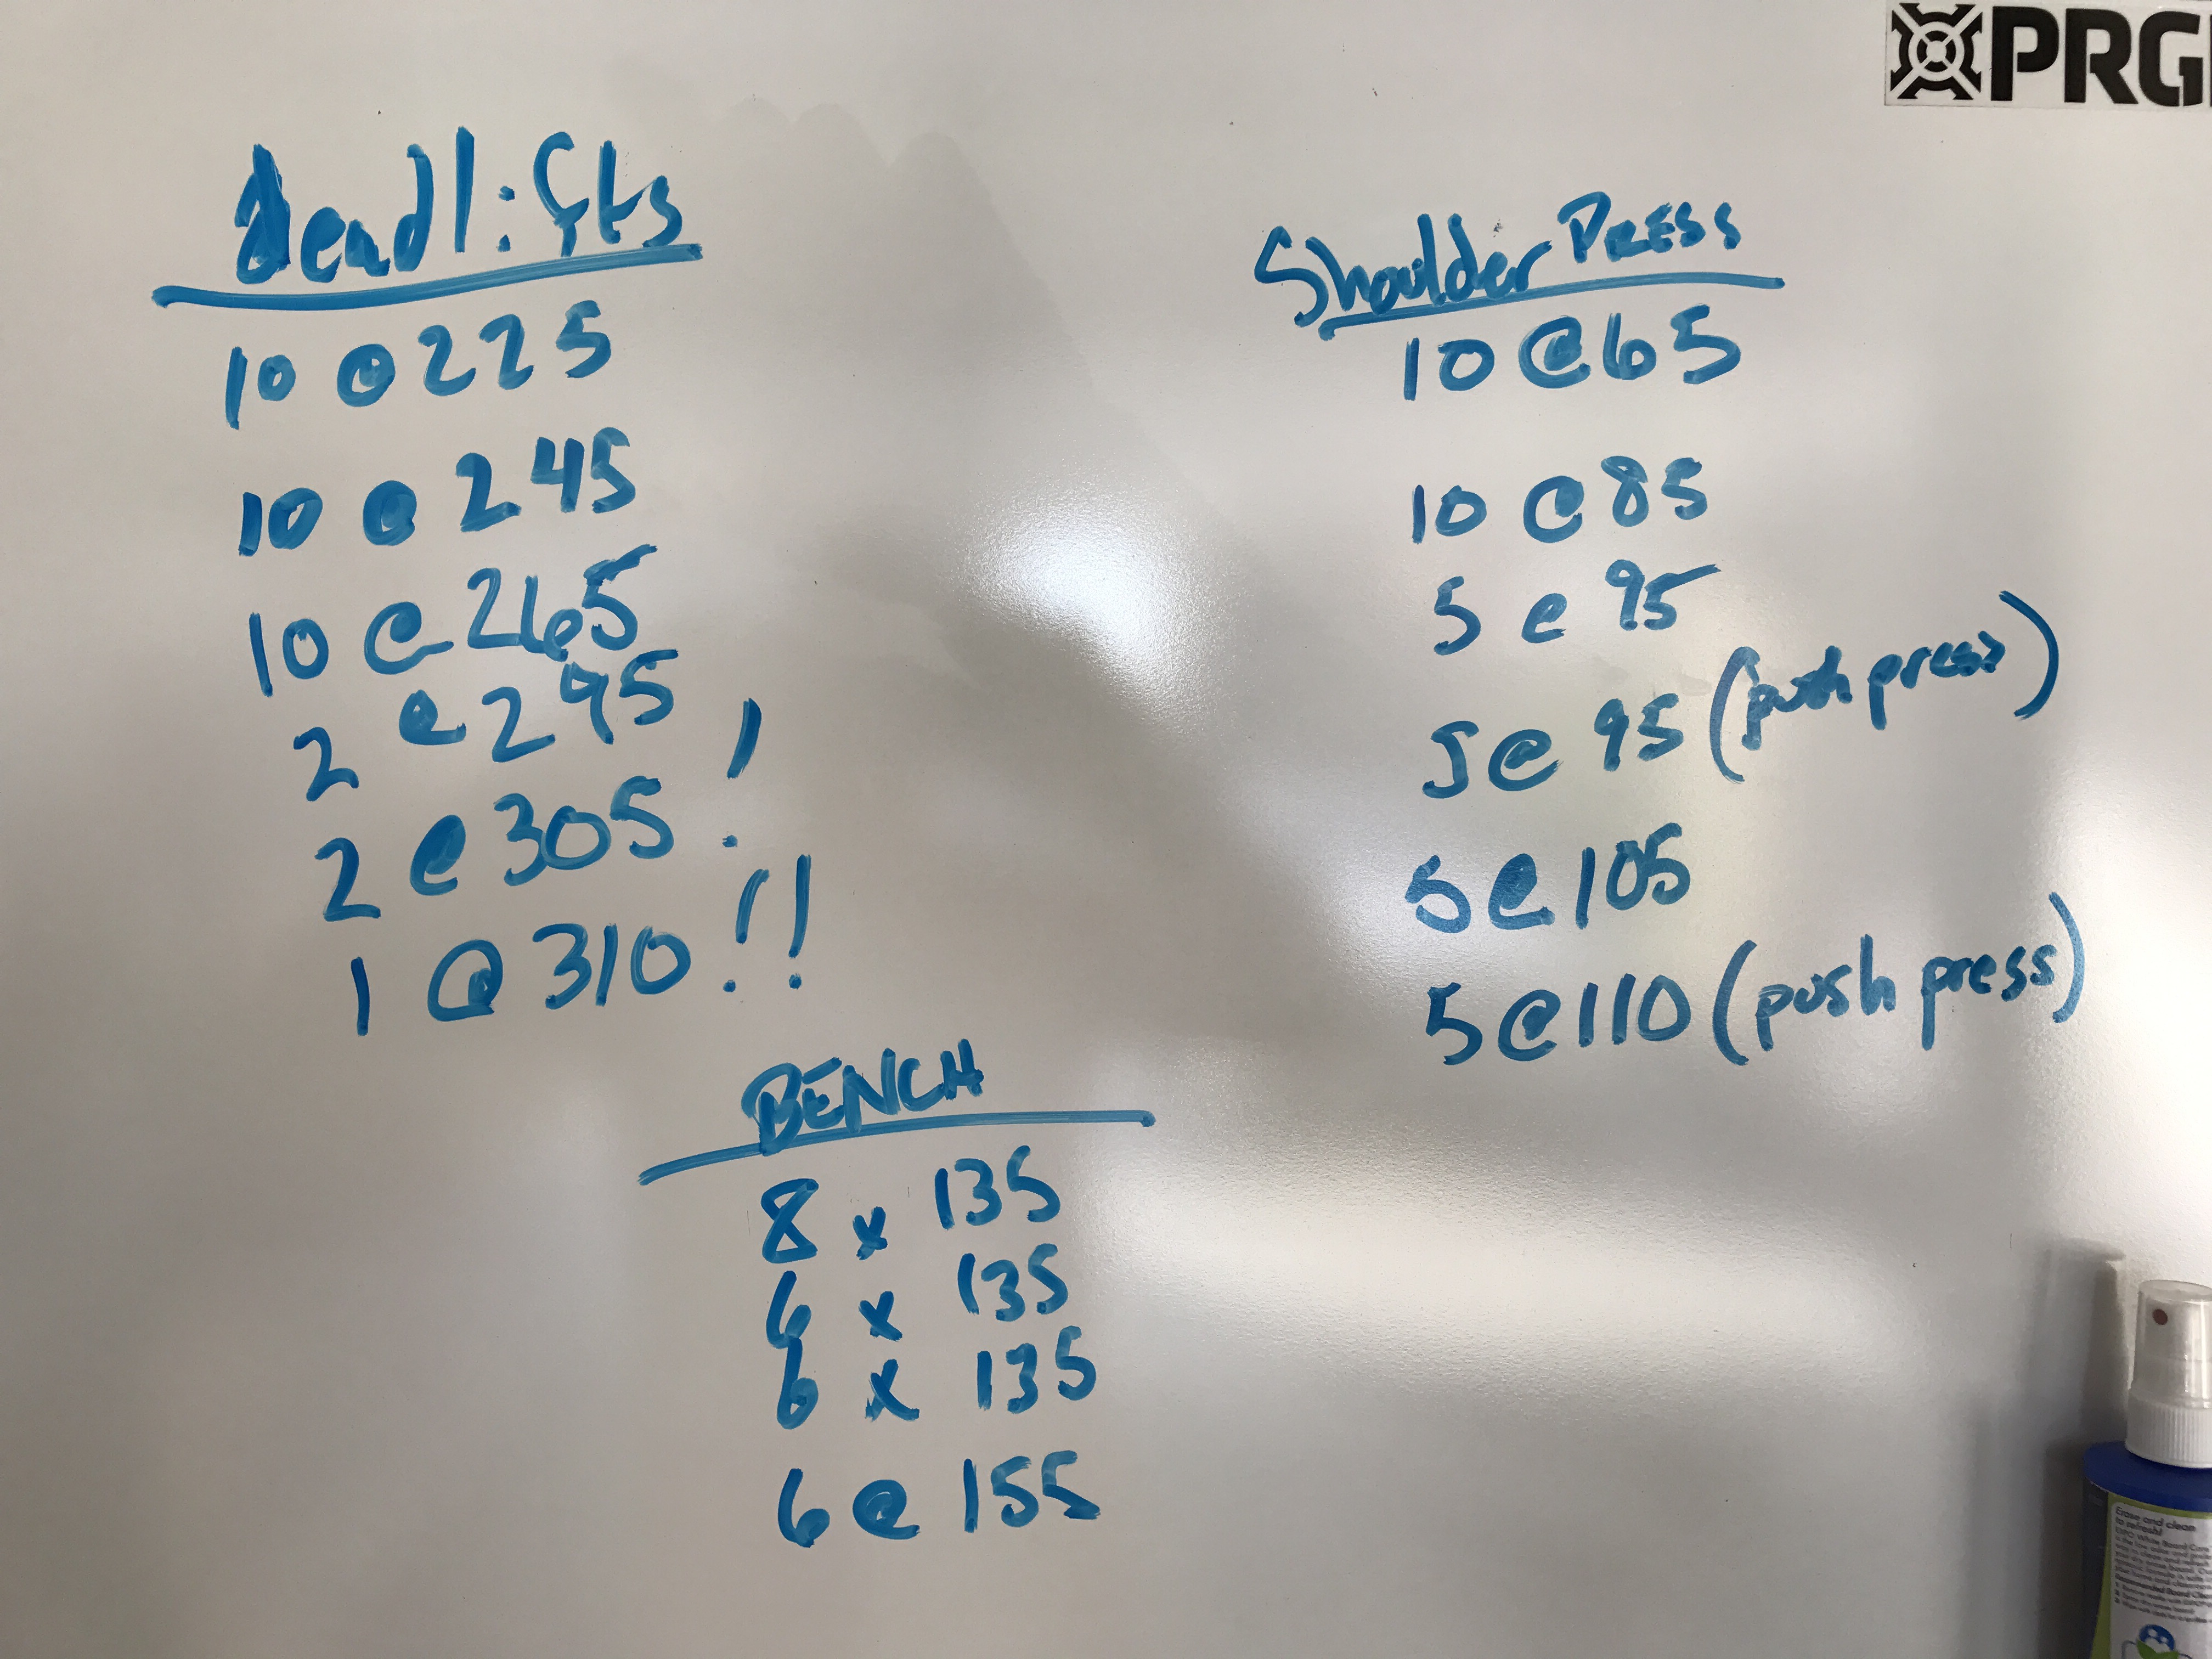 Deadlifts
10 @ 225
10 @ 245
10 @ 265
2 @ 295
2 @ 305!
1 @ 310!!
Shoulder PRESS
10 @ 65
10 @ 85
5 @ 95
5 @ 95 (push press)
5 @ 105
5 @ 110 (push press)
BENCH
8 x 135
6 x 135
6 x 135
6 @ 155
PRG
Erase and clean
to refresh!